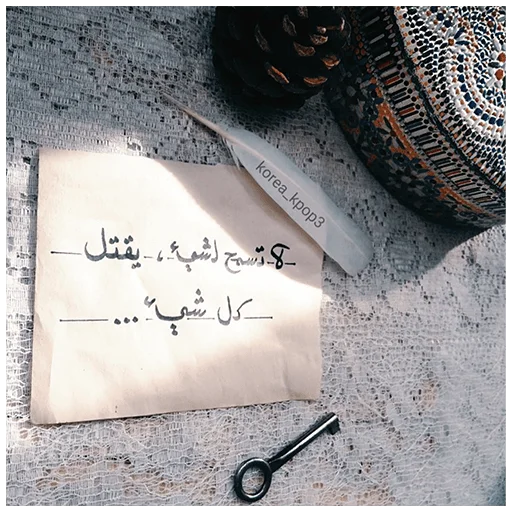 korea_kpop3
لا تسمح لشيء، يقتل
كل شيء ...